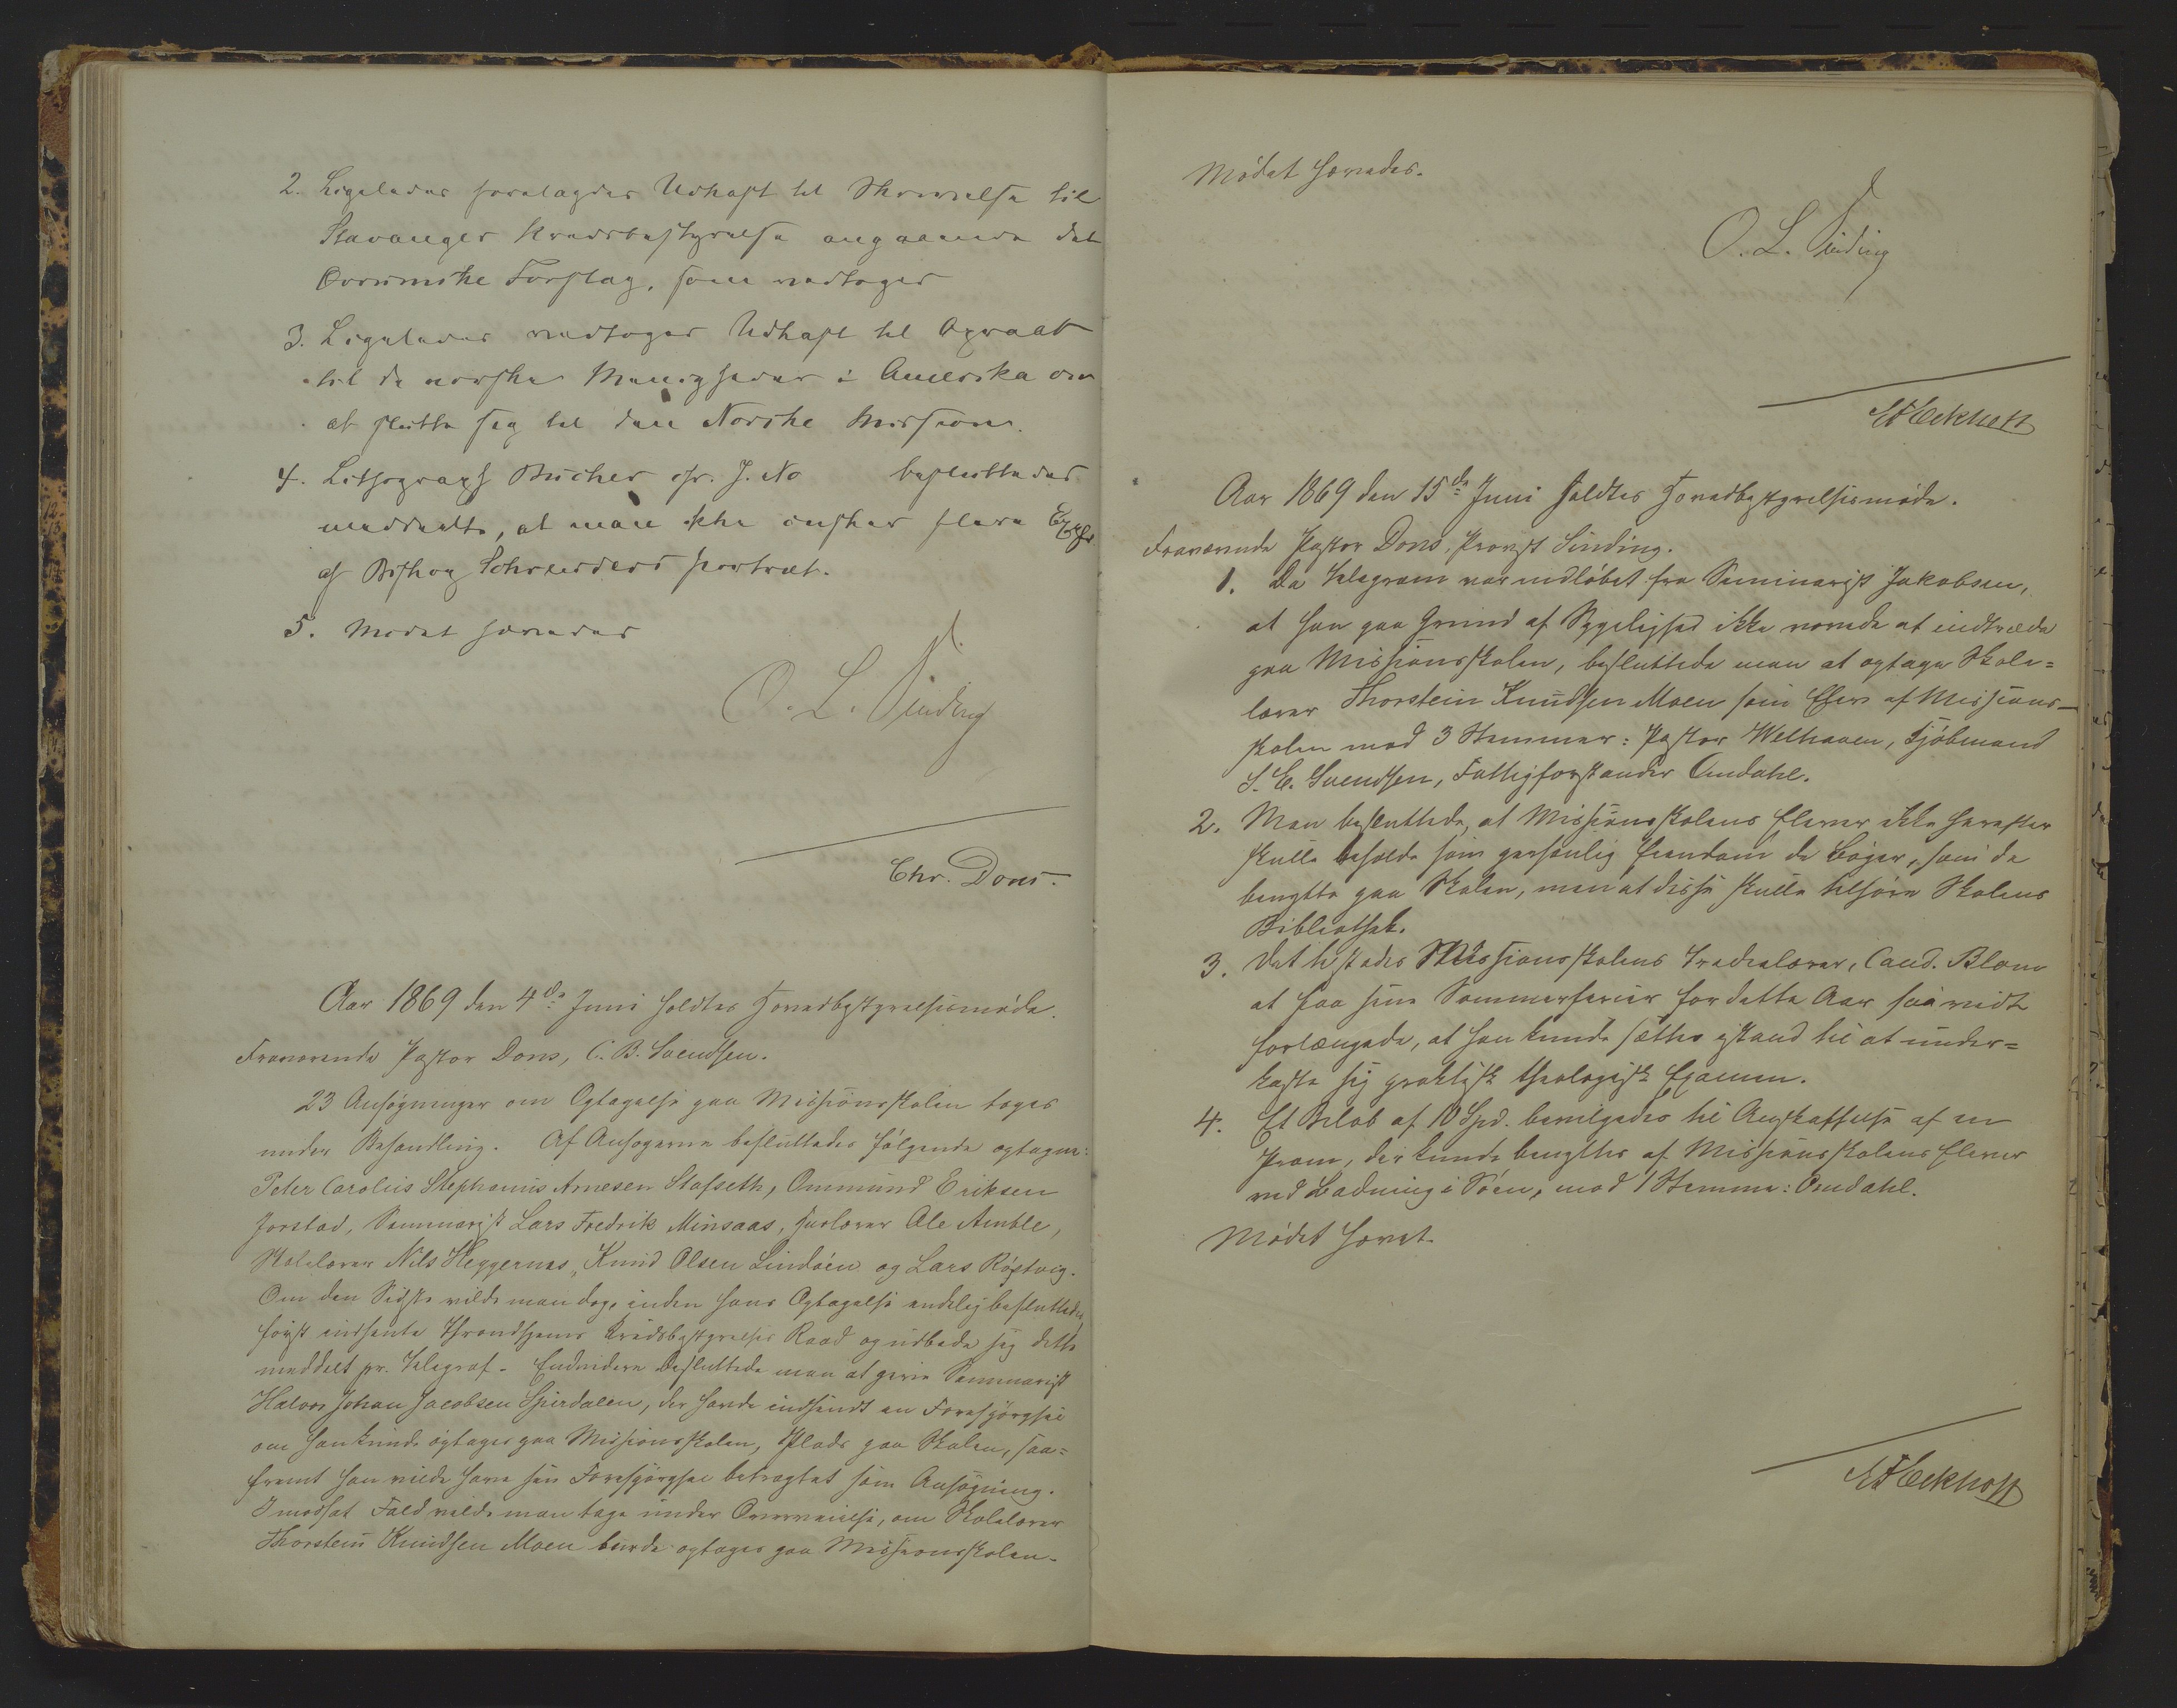 2. Ligeledes forelagdes Udkast til Skrivelse til
Stavanger Kredsbestyrelse angaaende det
Forslag, som vedtoges
3. Ligeledes vedtoges Udkast til Opraab
til de norske Menigheder i Amerika om
at slutte sig til den Norske Mission.
4. Lithograph Bücher cfr. J. No besluttedes
meddeelt, at man ikke ønsker flere Explr
af Biskop Schreuders portræt.
5. Mødet hævedes
O. L. Sinding
Chr. Dons.
Aar 1869 den 4de Juni holdtes Hovedbestyrelsesmøde.
Fraværende Pastor Dons, C. B. Svendsen.
23 Ansøgninger om Optagelse paa Missionsskolen toges
under Behandling. Af Ansøgerne besluttedes følgende optagne:
Peter Carolus Stephanus Arnesen Stafseth, Ommund Eriksen
Jorstad, Seminarist Lars Fredrik Minsaas, Huslærer Ole Amble,
Skolelærer Nils Heggernes, Knud Olsen Lindøen og Lars Røstvig.
Om den Sidste vilde man dog, inden hans Optagelse endelig besluttedes,
først indhente Throndhjems Kredsbestyrelses Raad og udbede sig dette
meddelt pr. Telegraf. Endvidere besluttede man at give Seminarist
Halvor Johan Jacobsen Spirdalen, der havde indsendt en Forespørgsel
om han kunde optages paa Missionsskolen, Plads paa Skolen, saa=
fremt han vilde have sin Forespørgsel betragtet som Ansøgning.
I modsat Fald vilde man tage under Overveielse, om Skolelærer
Thorstein Knudsen Moen burde optages paa Missionsskolen.
Mødet hævedes.
O. L. Sinding
Eckhoff
Aar 1869 den 15de Juni holdtes Hovedbestyrelsesmøde.
Fraværende Pastor Dons, Provst Sinding.
1. Da Telegram var indløbet fra Seminarist Jakobsen,
at han paa Grund af Sygelighed ikke vovede at indtræde
paa Missionsskolen, besluttede man at optage Skole=
lærer Thorstein Knudsen Moen som Elev af Missions-
skolen mod 3 Stemmer: Pastor Welhaven, Kjøbmand
S. E. Svendsen, Fattigforstander Omdahl.
2. Man besluttede, at Missionsskolens Elever ikke herefter
skulle beholde som personlig Eiendom de Bøger, som de
benytte paa Skolen, men at disse skulle tilhøre Skolens
Bibliothek.
3. Det tilstedes Missionsskolens Trediélærer, Cand. Blom
at faa sine Sommerferier for dette Aar saa vidt
forlængede, at han kunde sættes istand til at under=
kaste sig praktisk theologisk Examen.
4. Et Beløb af 10 Spd. bevilgedes til Anskaffelse af en
Pram, der kunde benyttes af Missionsskolens Elever
ved Badning i Søen, mod 1 Stemme: Omdahl.
Mødet hævet.
Eckhoff